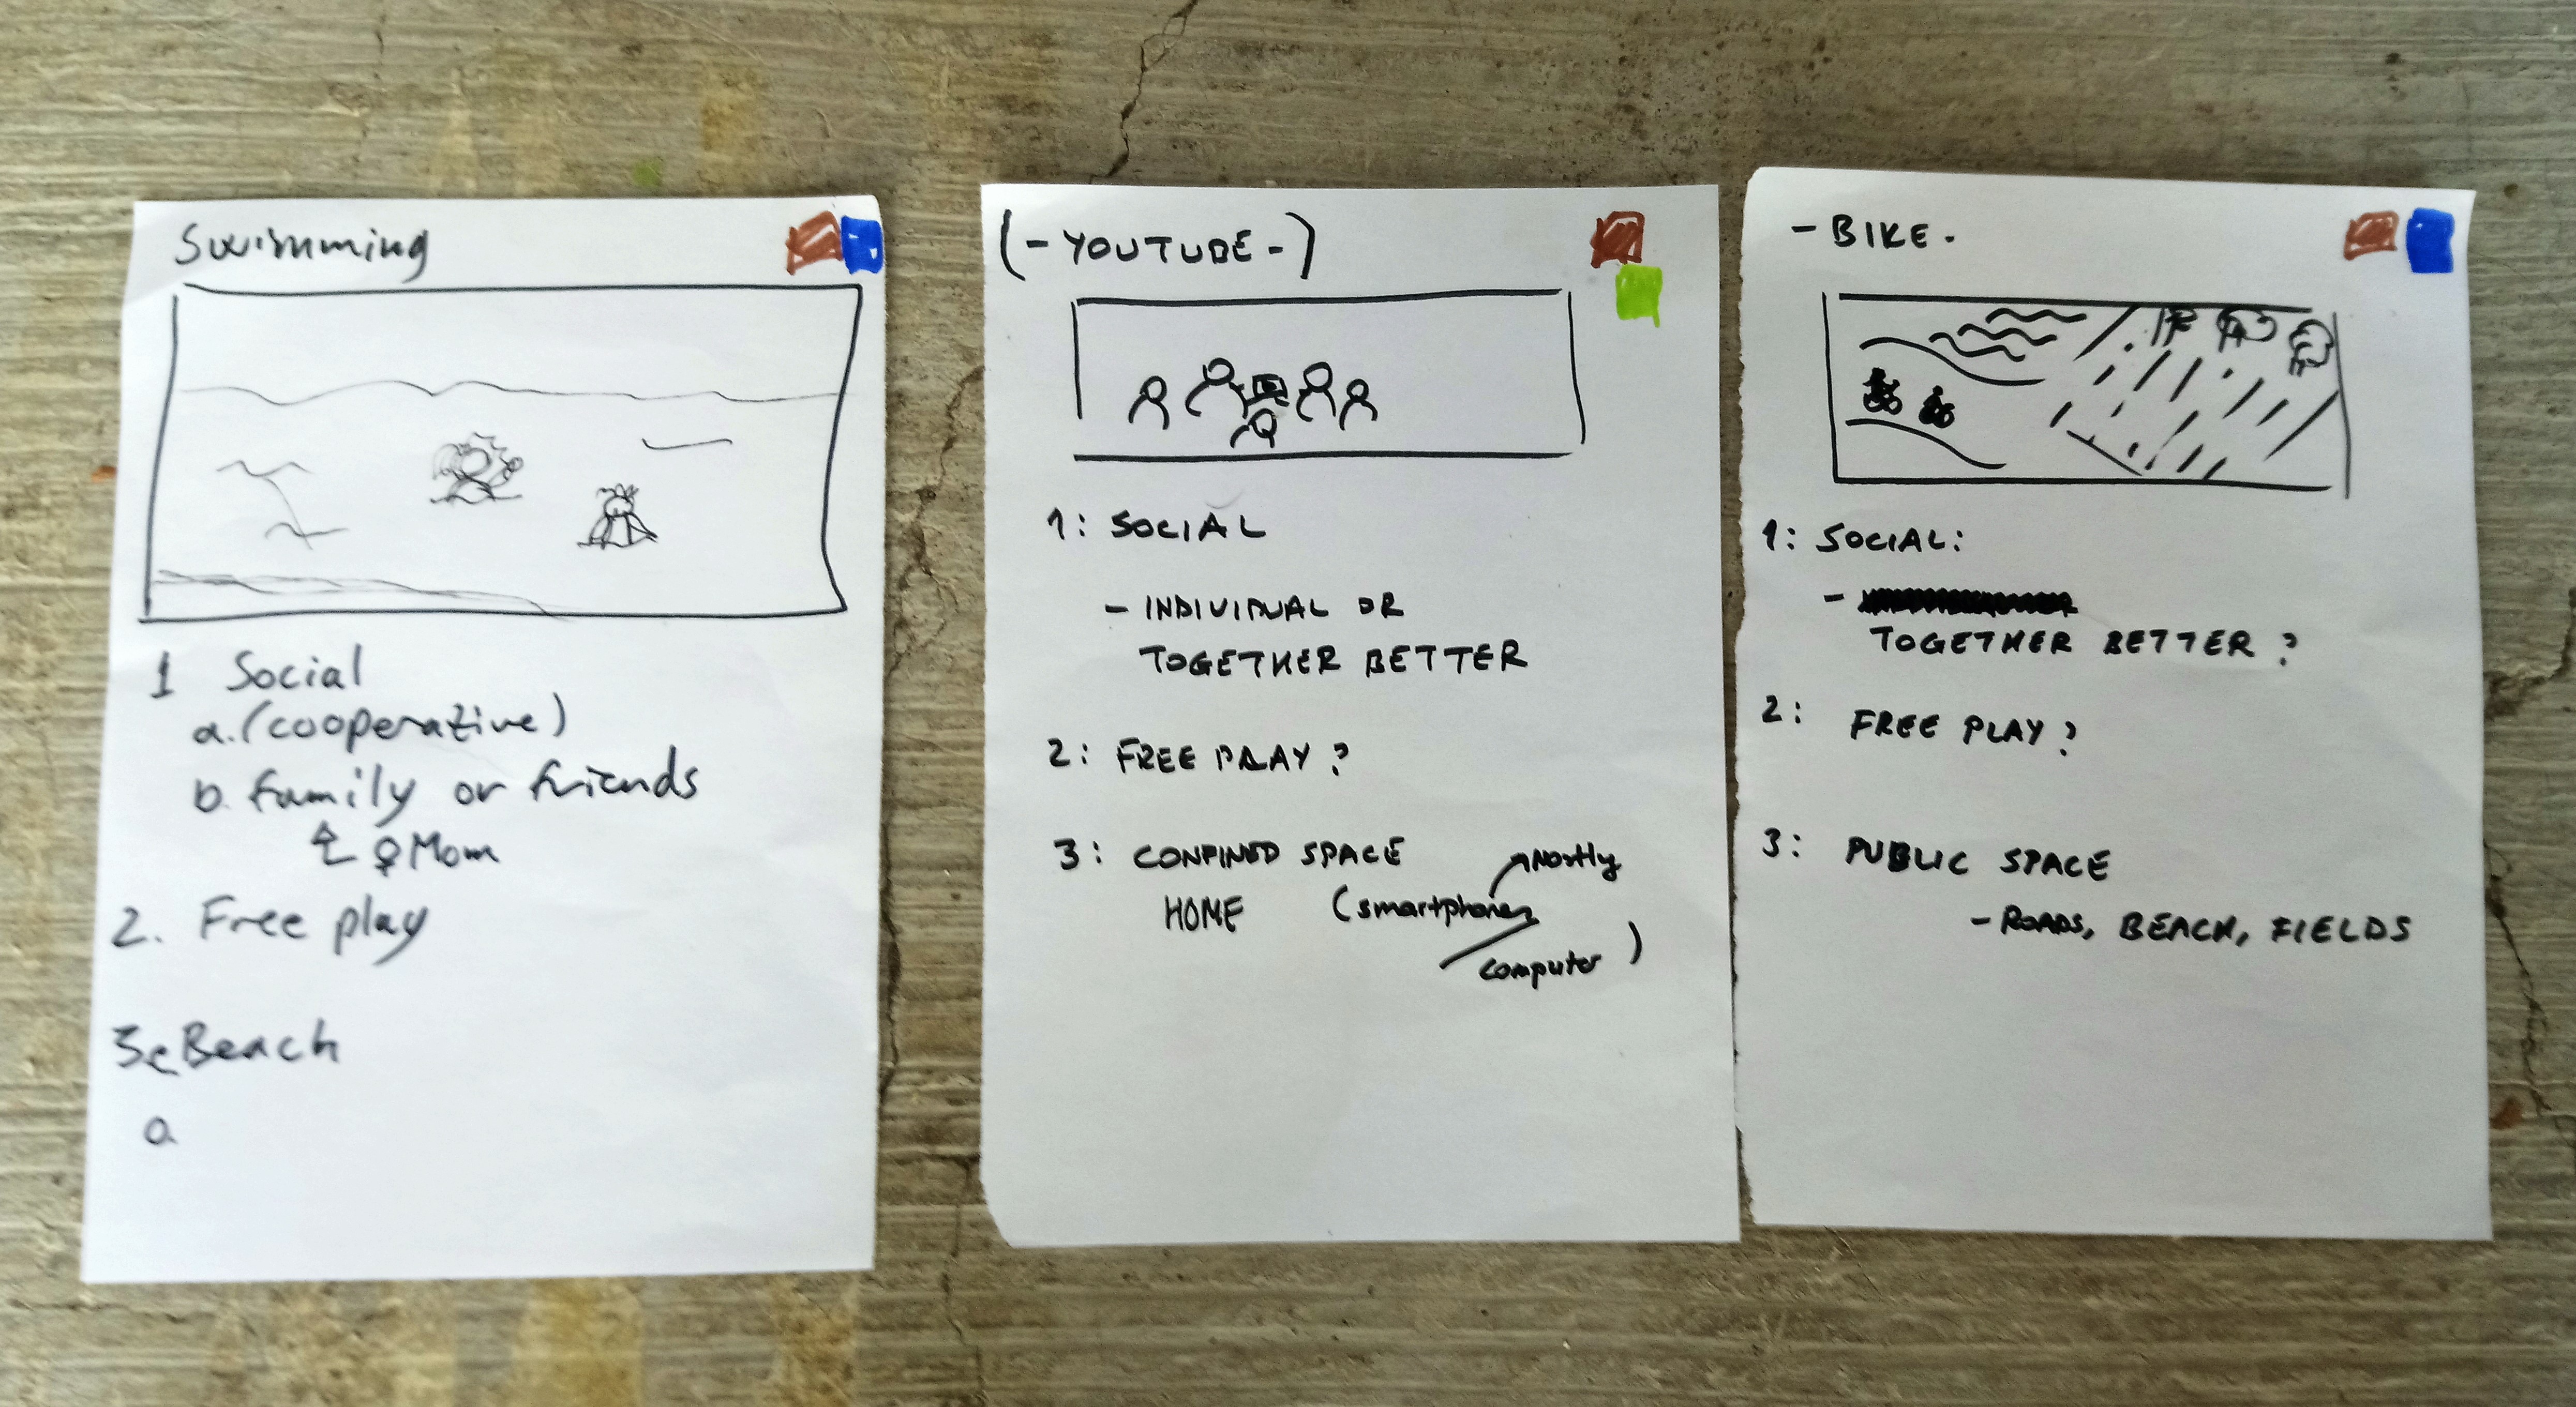 Swimming
1 Social
a. (cooperative)
b. family or friends
♀ Mom
2. Free play
3 Beach
a
(- YOUTUBE -)
1: SOCIAL
- INDIVIDUAL OR
TOGETHER BETTER
2: FREE PLAY ?
3: CONFINED SPACE
HOME (smartphones mostly
computer )
- BIKE -
1: SOCIAL:
-
TOGETHER BETTER ?
2: FREE PLAY ?
3: PUBLIC SPACE
- ROADS, BEACH, FIELDS